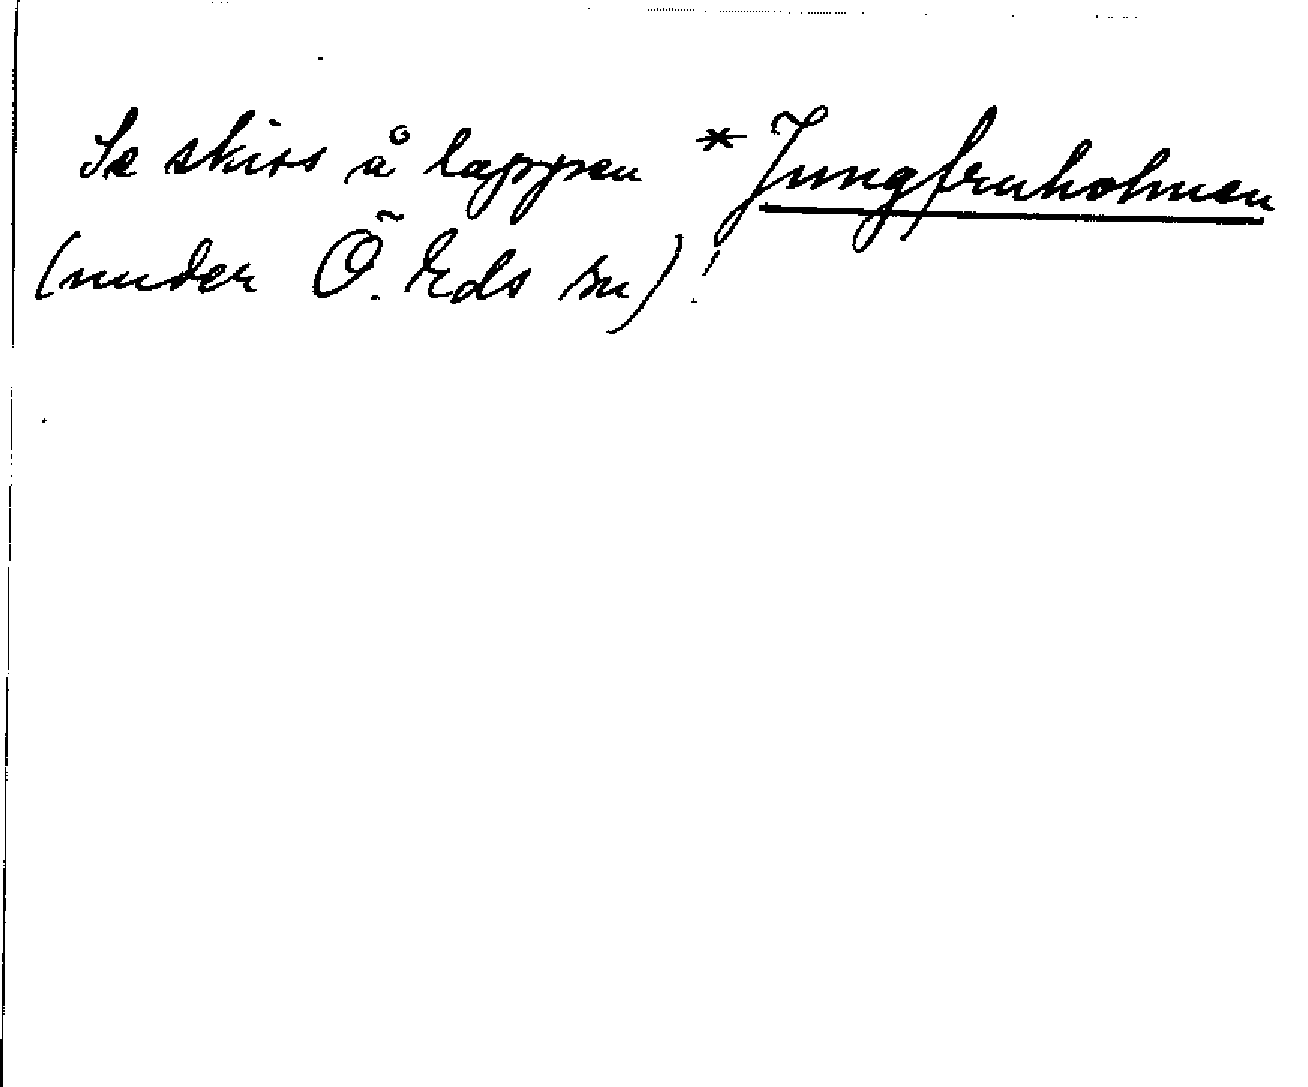 Se skiss å lappen *Jungfruholmen
(under Ö. Eds sn)!